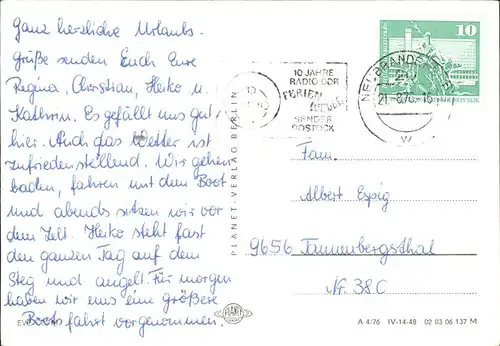 Ganz herzliche Urlaubs-
grüße senden Euch Eure
Regina, Christian, Heiko u.
Kathrin. Es gefällt uns gut
hier. Auch das Wetter ist
zufriedenstellend. Wir gehen
baden, fahren mit dem Boot
und abends sitzen wir vor
dem Zelt. Heiko steht fast
den ganzen Tag auf dem
Steg und angelt. Für morgen
haben wir uns eine größere
Bootsfahrt vorgenommen.
PLANET-VERLAG BERLIN
10 JAHRE
RADIO DDR
FERIEN
SENDER
ROSTOCK
10
NEUBRANDENBURG
21.-8.76-16
Fam.
Albert Espig
9656 Tannenbergsthal
Nr. 38C
PLANET
A 4/76 IV-14-48 02 03 06 137 M